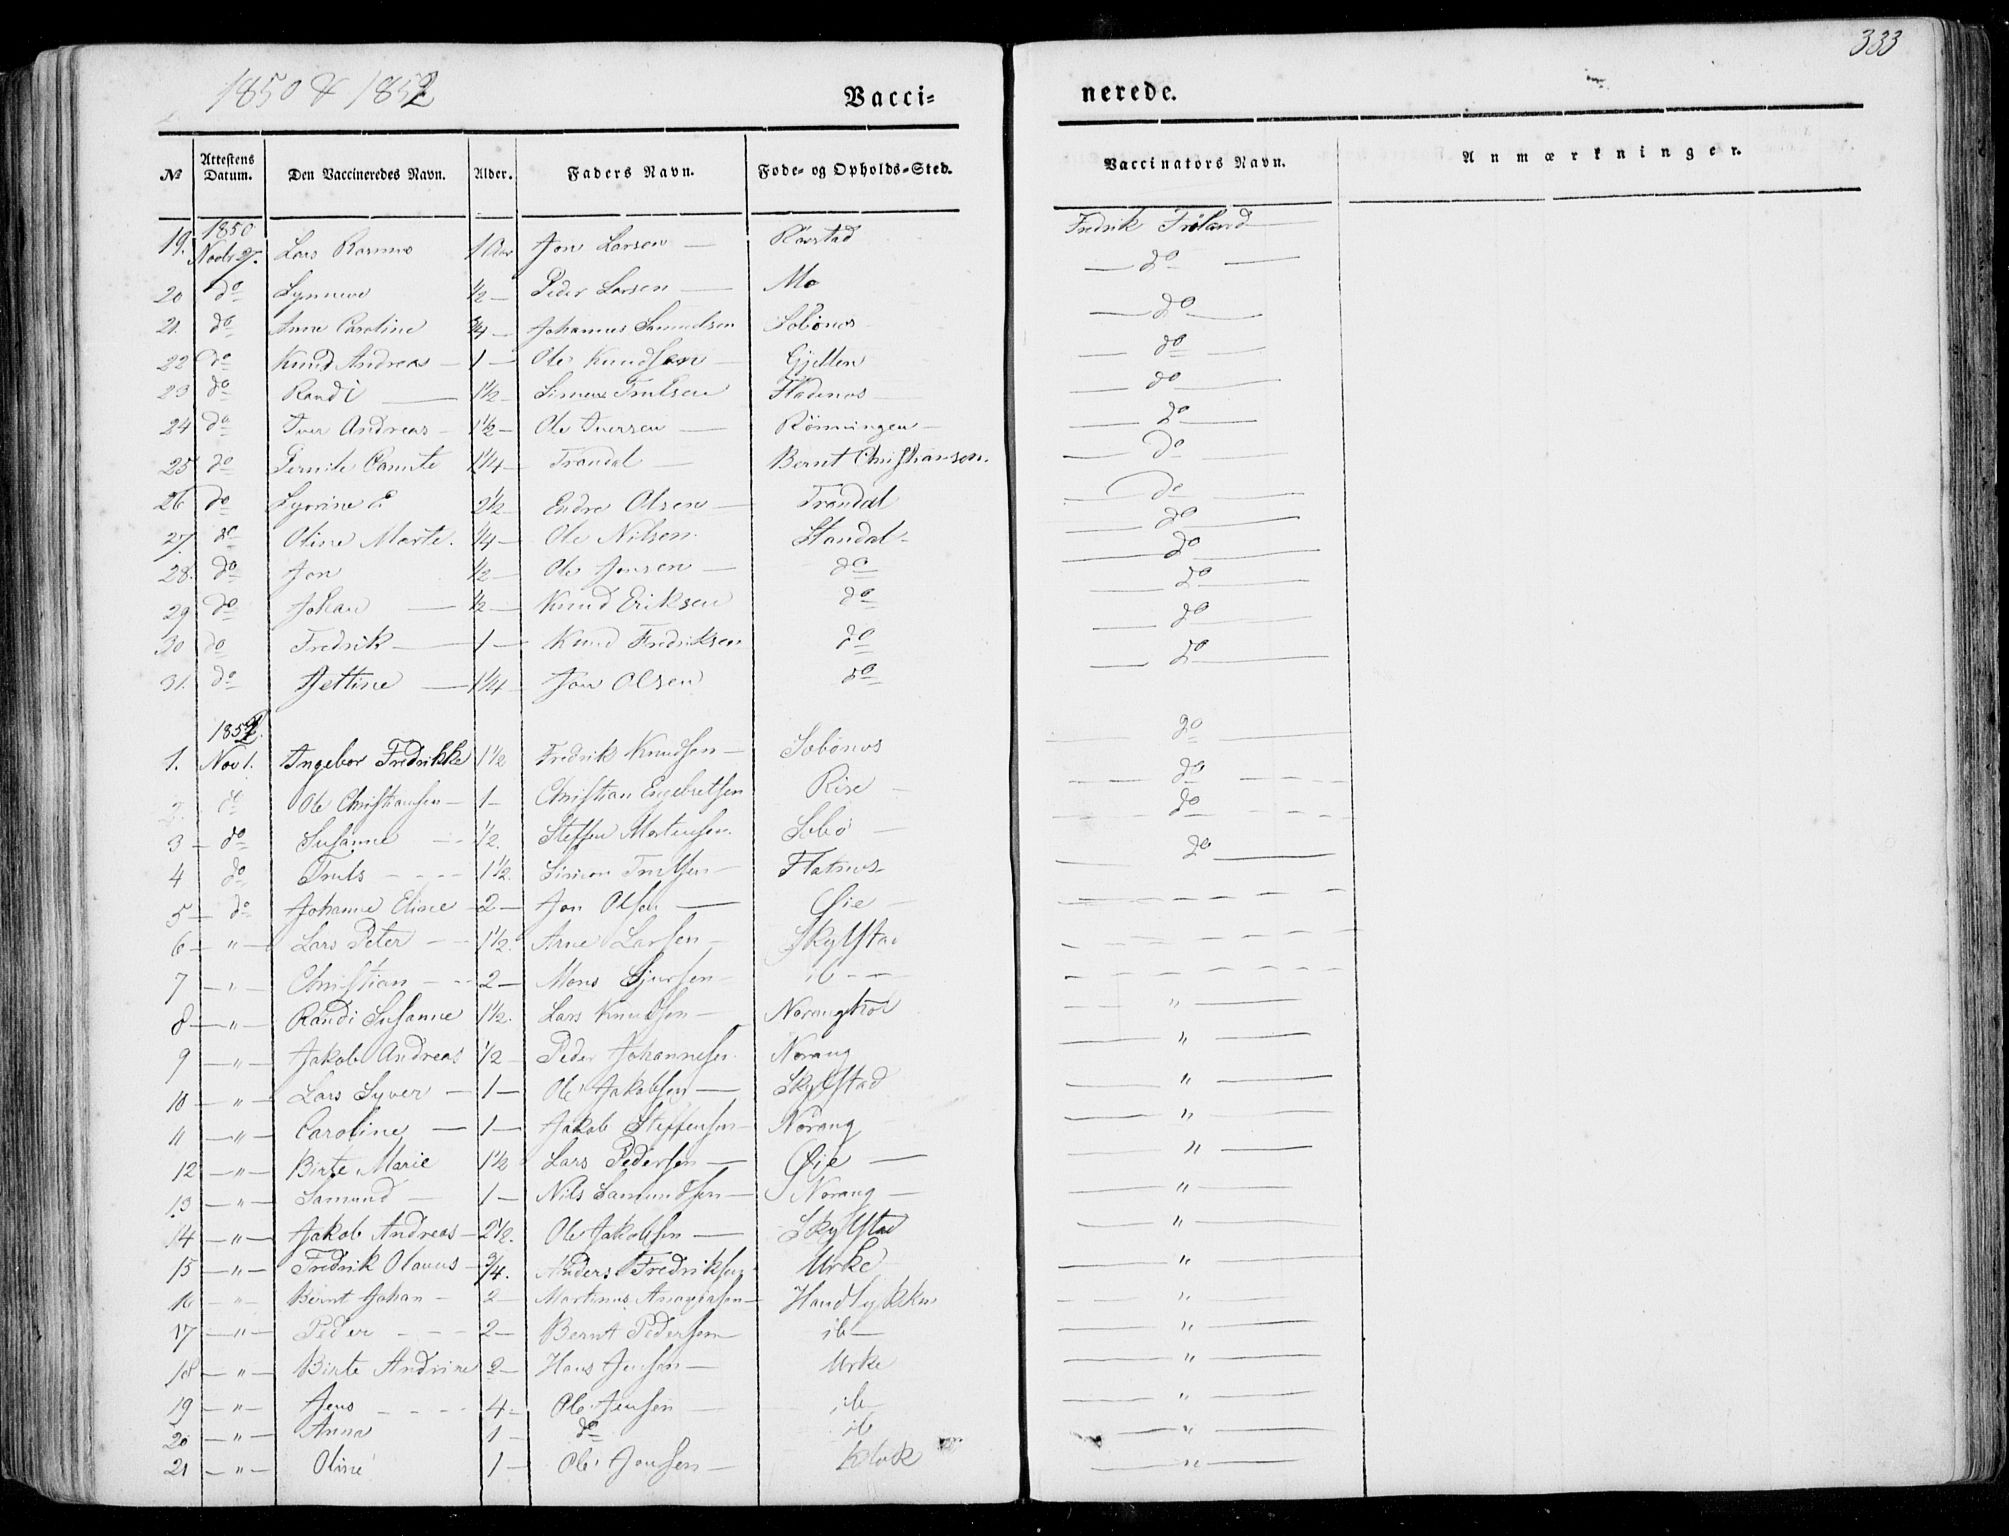 333
1850 & 1852
Vacci-
nerede.
№ Attestens Datum. Den Vaccineredes Navn. Alder. Faders Navn. Føde- og Opholds-Sted. Vaccinators Navn. Anmærkninger.
1850
19. Novbr 27. Lars Rasmus 1 Aar Jon Larsen — Fredrik Frøland
20 do Synneve ½ — Peder Larsen — Mo — do —
21. do Anne Caroline ¾ — Johannes Samuelsen Sæbønes — do —
22 do Knud Andreas — 1 — Ole Knudsen — — do —
23 do Randi — 1½ — Simen Trulsen Fladenes — do —
24 do Iver Andreas — 1½ — Ole Iversen — Rønningen — — do —
25 do 1¼ — Trandal — Bernt Christiansen. — do —
26 do E 2½ — Endre Olsen — Trandal — do —
27. do Oline Marte. ¼ — Ole Nilsen. Standal — do —
28. do Jon ½ — Ole Jonsen — do — do —
29 do Johan — ½ — Knud Eriksen do — do —
30 do Fredrik — 1 — Knud Fredriksen do — do —
31. do Jettine — 1¼ — Jon Olsen do — do —
1852.
1. Nov 1. Ingebor Fredrikke 1½ Fredrik Knudsen — Sæbønes — do —
2. do Ole Christiansen — 1 — Christian Engebretsen Rise — — do —
3 — do Susanne — ½. Steffen Mortensen. Sæbø — — do —
4 do Truls — 1½. Simon Trulsen — Flatnes — do —
5 — do Johanne Eline — 2 — Jon Olsen — Øie —
6 — " — Lars Peter — 1½. Arne Larsen — Skylstad
7 — " — Christian — 2 — Mons Sjursen — ib —
8 — " — Randi Susanne 1½. Lars Knudsen — — " —
9 — " — Jakob Andreas ½ — Peder Johannesen. Norang — " —
10 — " — Lars Syver — 1 — Ole Jakobsen — Skylstad — " —
11 — " — Caroline — 1 — Jakob Steffensen — Norang — " —
12 — " — Birte Marie 1½ Lars Pedersen — Øie — — " —
13 — " — Samund — 1 — Nils Samundsen — Norang — — " —
14 — " — Jakob Andreas — 2½. Ole Jakobsen — Skylstad — " —
15 — " — Fredrik Olaus — ¾. Anders Fredriksen Urke — " —
16 — " — Bernt Johan — 2 — Martinus — — " —
17 — " — Peder — 2 — Bernt Pedersen — ib — — " —
18 — " — Birte Andrine 2 — Hans Jensen — Urke — " —
19 — " — Jens — 4 — Ole Jensen — ib — — " —
20 — " — Anna 1 — do ib — " —
21 — " — Oline 1 — Ole Jonsen — Klok — " —